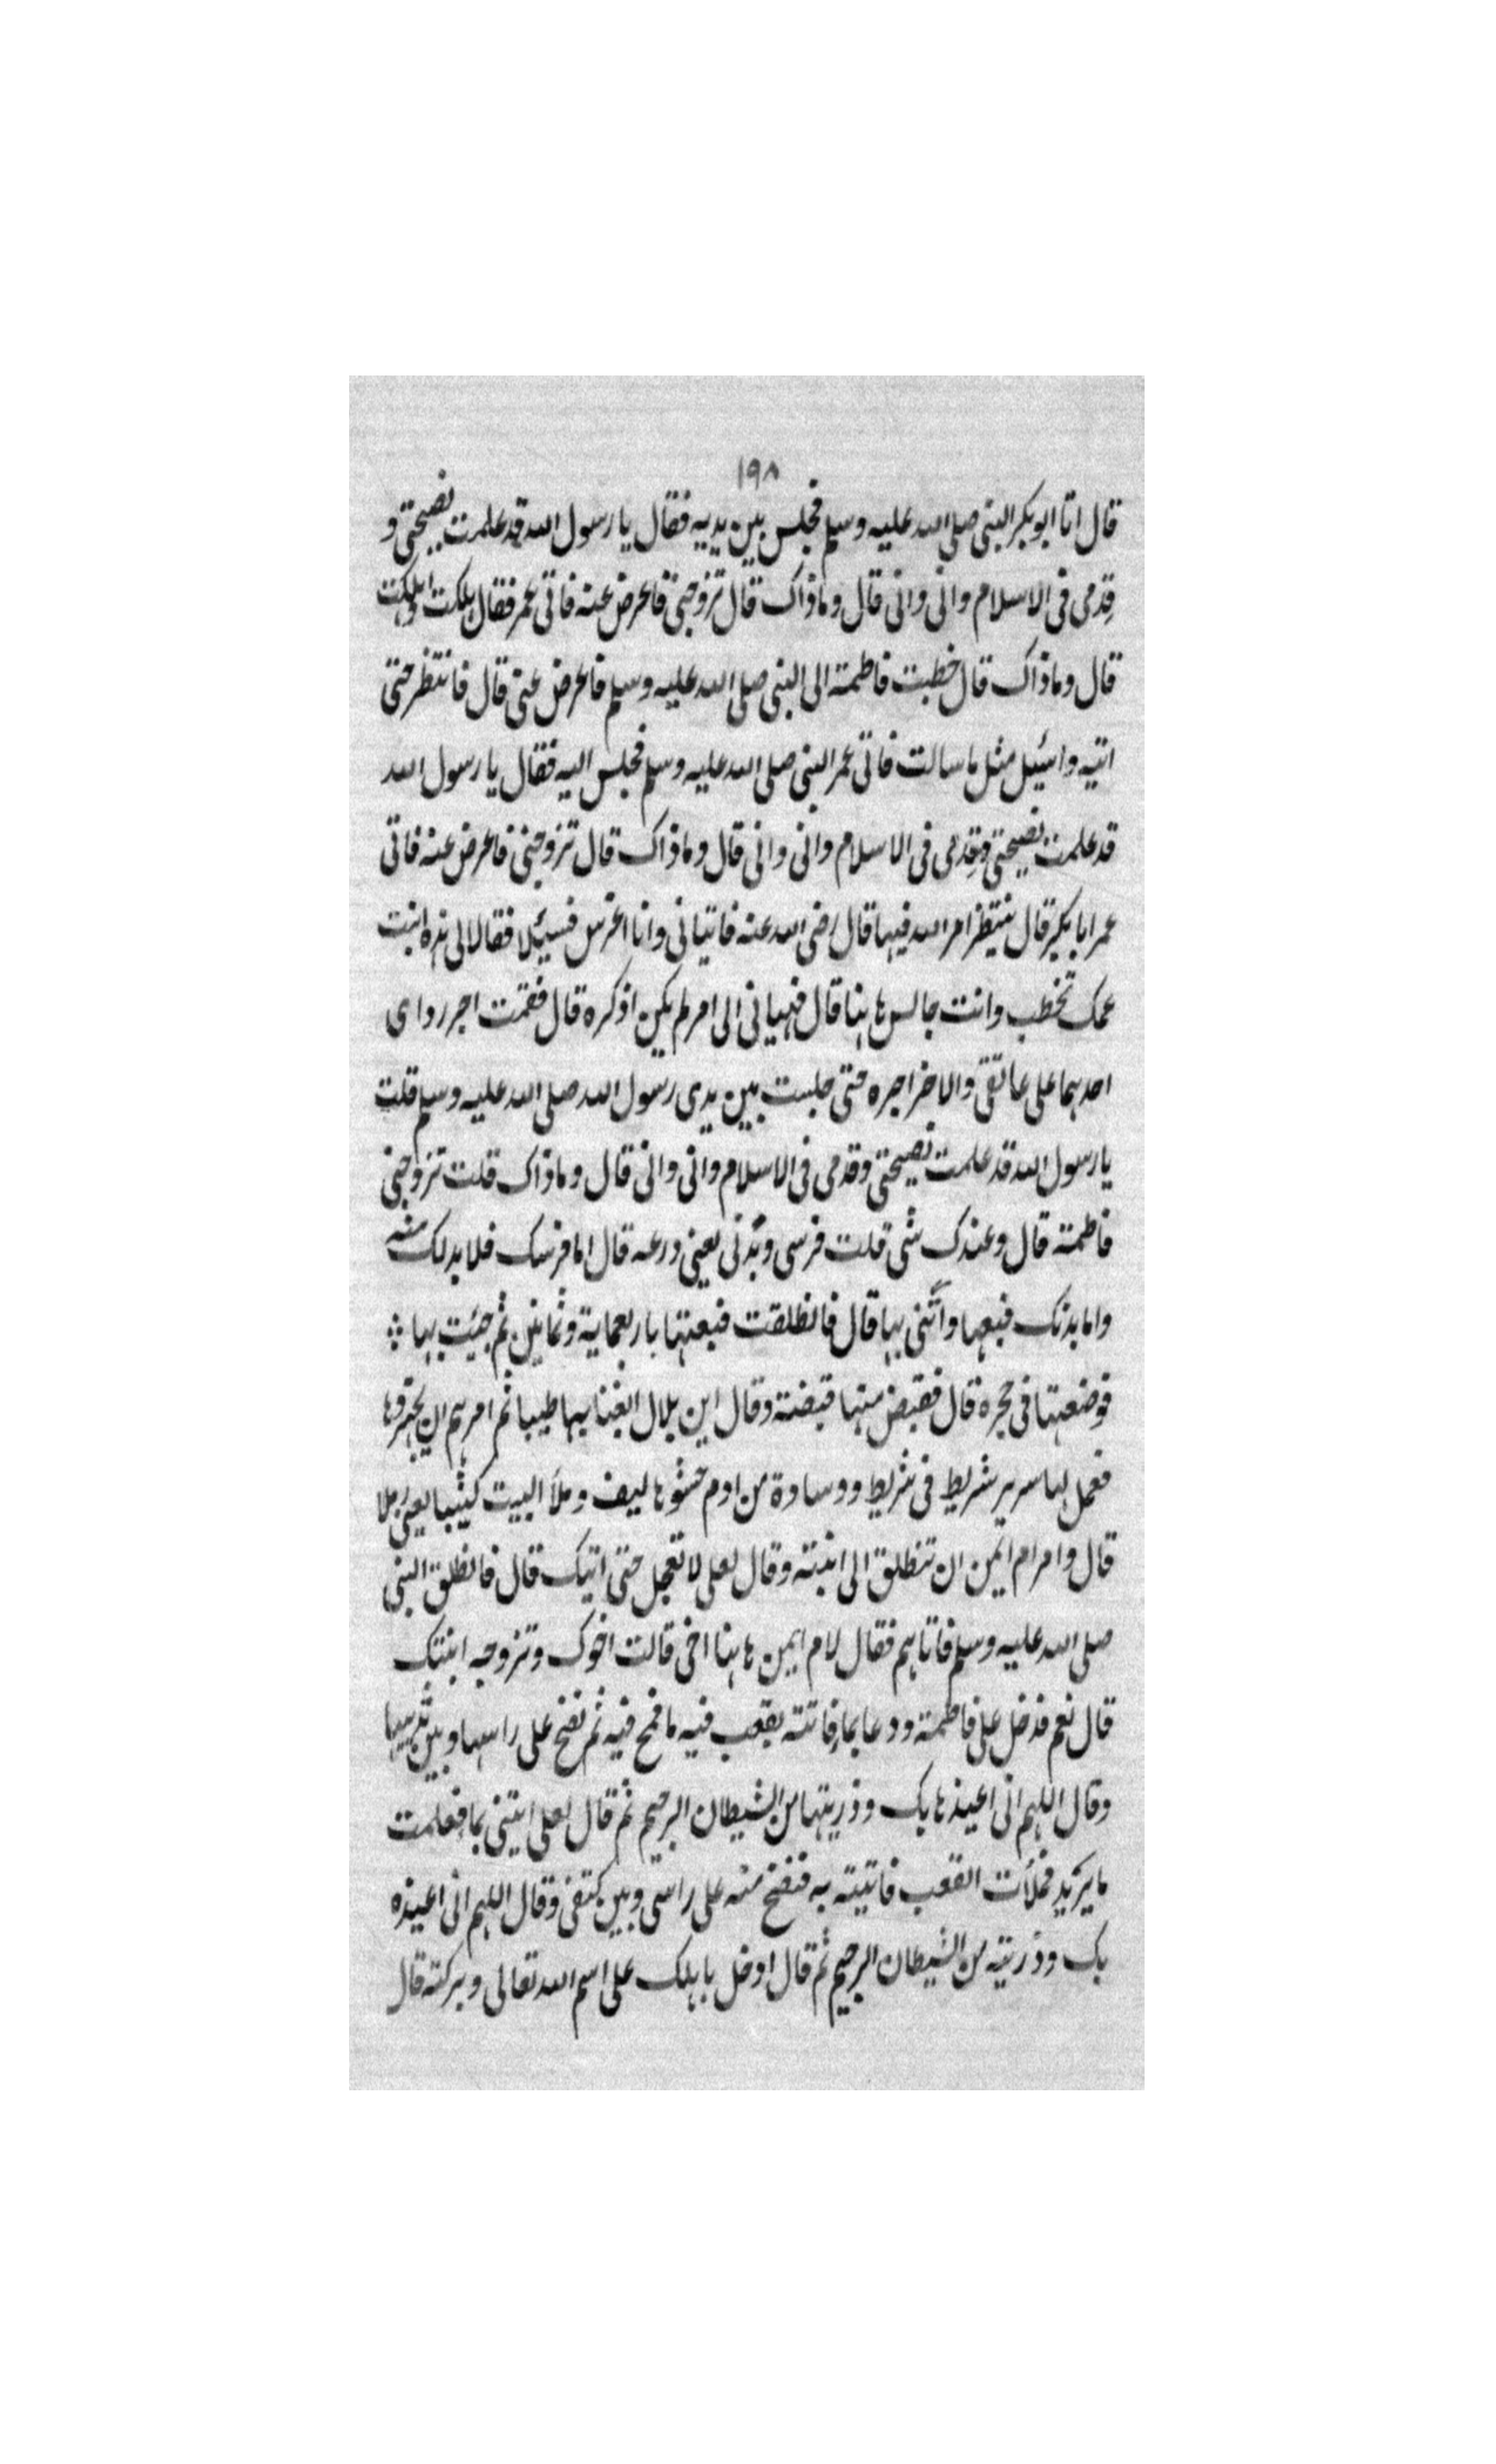 ١٩٨
قال اتا ابو بكر النبى صلى الله عليه وسلم فجلس بين يديه فقال يا رسول الله قد علمت نصيحتى و
قِدمى فى الاسلام وانى وانى قال وماذاك قال تزوجنى فاعرض عنه فاتى عمر فقال هلكت واهلكت
قال وماذاك قال خطبت فاطمة الى النبى صلى الله عليه وسلم فاعرض عنى قال فانتظر حتى
اتيه واسئيل مثل ما سالت فاتى عمر النبى صلى الله عليه وسلم فجلس اليه فقال يا رسول الله
قد علمت نصيحتى وقِدمى فى الاسلام وانى وانى قال وماذاك قال تزوجنى فاعرض عنه فاتى
عمر ابا بكر قال ينتظر امر الله فيها قال رضى الله عنه فاتيانى وانا اغرس فسيلا فقالا لى هذه ابنت
عمك تخطب وانت جالس هاهنا قال فنهيانى الى امر لم يكن اذكره قال فقمت اجر رداى
احدهما على عاتقى والاخر اجره حتى جلست بين يدى رسول الله صلى الله عليه وسلم قلت
يا رسول الله قد علمت نصيحتى وقدمى فى الاسلام وانى وانى قال وماذاك قلت تزوجنى
فاطمة قال وعندك شى قلت فرسى وبُدنى يعنى درعه قال اما فرسك فلا بد لك منه
واما بدنك فبعها وأتنى بها قال فانطلقت فبعتها باربعماية وثمانين ثم جئت بها ؞
فوضعتها فى حجره قال فقبض منها قبضة وقال اين بلال ابغنا بها طيبا ثم امرهم ان يجهزوها
فعمل لها سرير شريط فى شريط ووسادة من ادم حشوها ليف وملأ البيت كثيبا يعنى رملا
قال وامر ام ايمن ان تنطلق الى ابنته وقال لعلى لا تعجل حتى اتيك قال فانطلق النبى
صلى الله عليه وسلم فاتاهم فقال لام ايمن هاهنا اخى قالت اخوك وتزوجه ابنتك
قال نعم فدخل على فاطمة ودعا بماء فاتته بقعب فيه ما فمج فيه ثم نضح على راسها وبين ثدييها
وقال اللهم انى اعيذها بك وذريتها من الشيطان الرجيم ثم قال لعلى ايتنى بماء فعلمت
ما يريد فملأت القعب فاتيته به فنضح منه على راسى وبين كتفى وقال اللهم انى اعيذه
بك وذريته من الشيطان الرجيم ثم قال ادخل باهلك على اسم الله تعالى وبركته قال